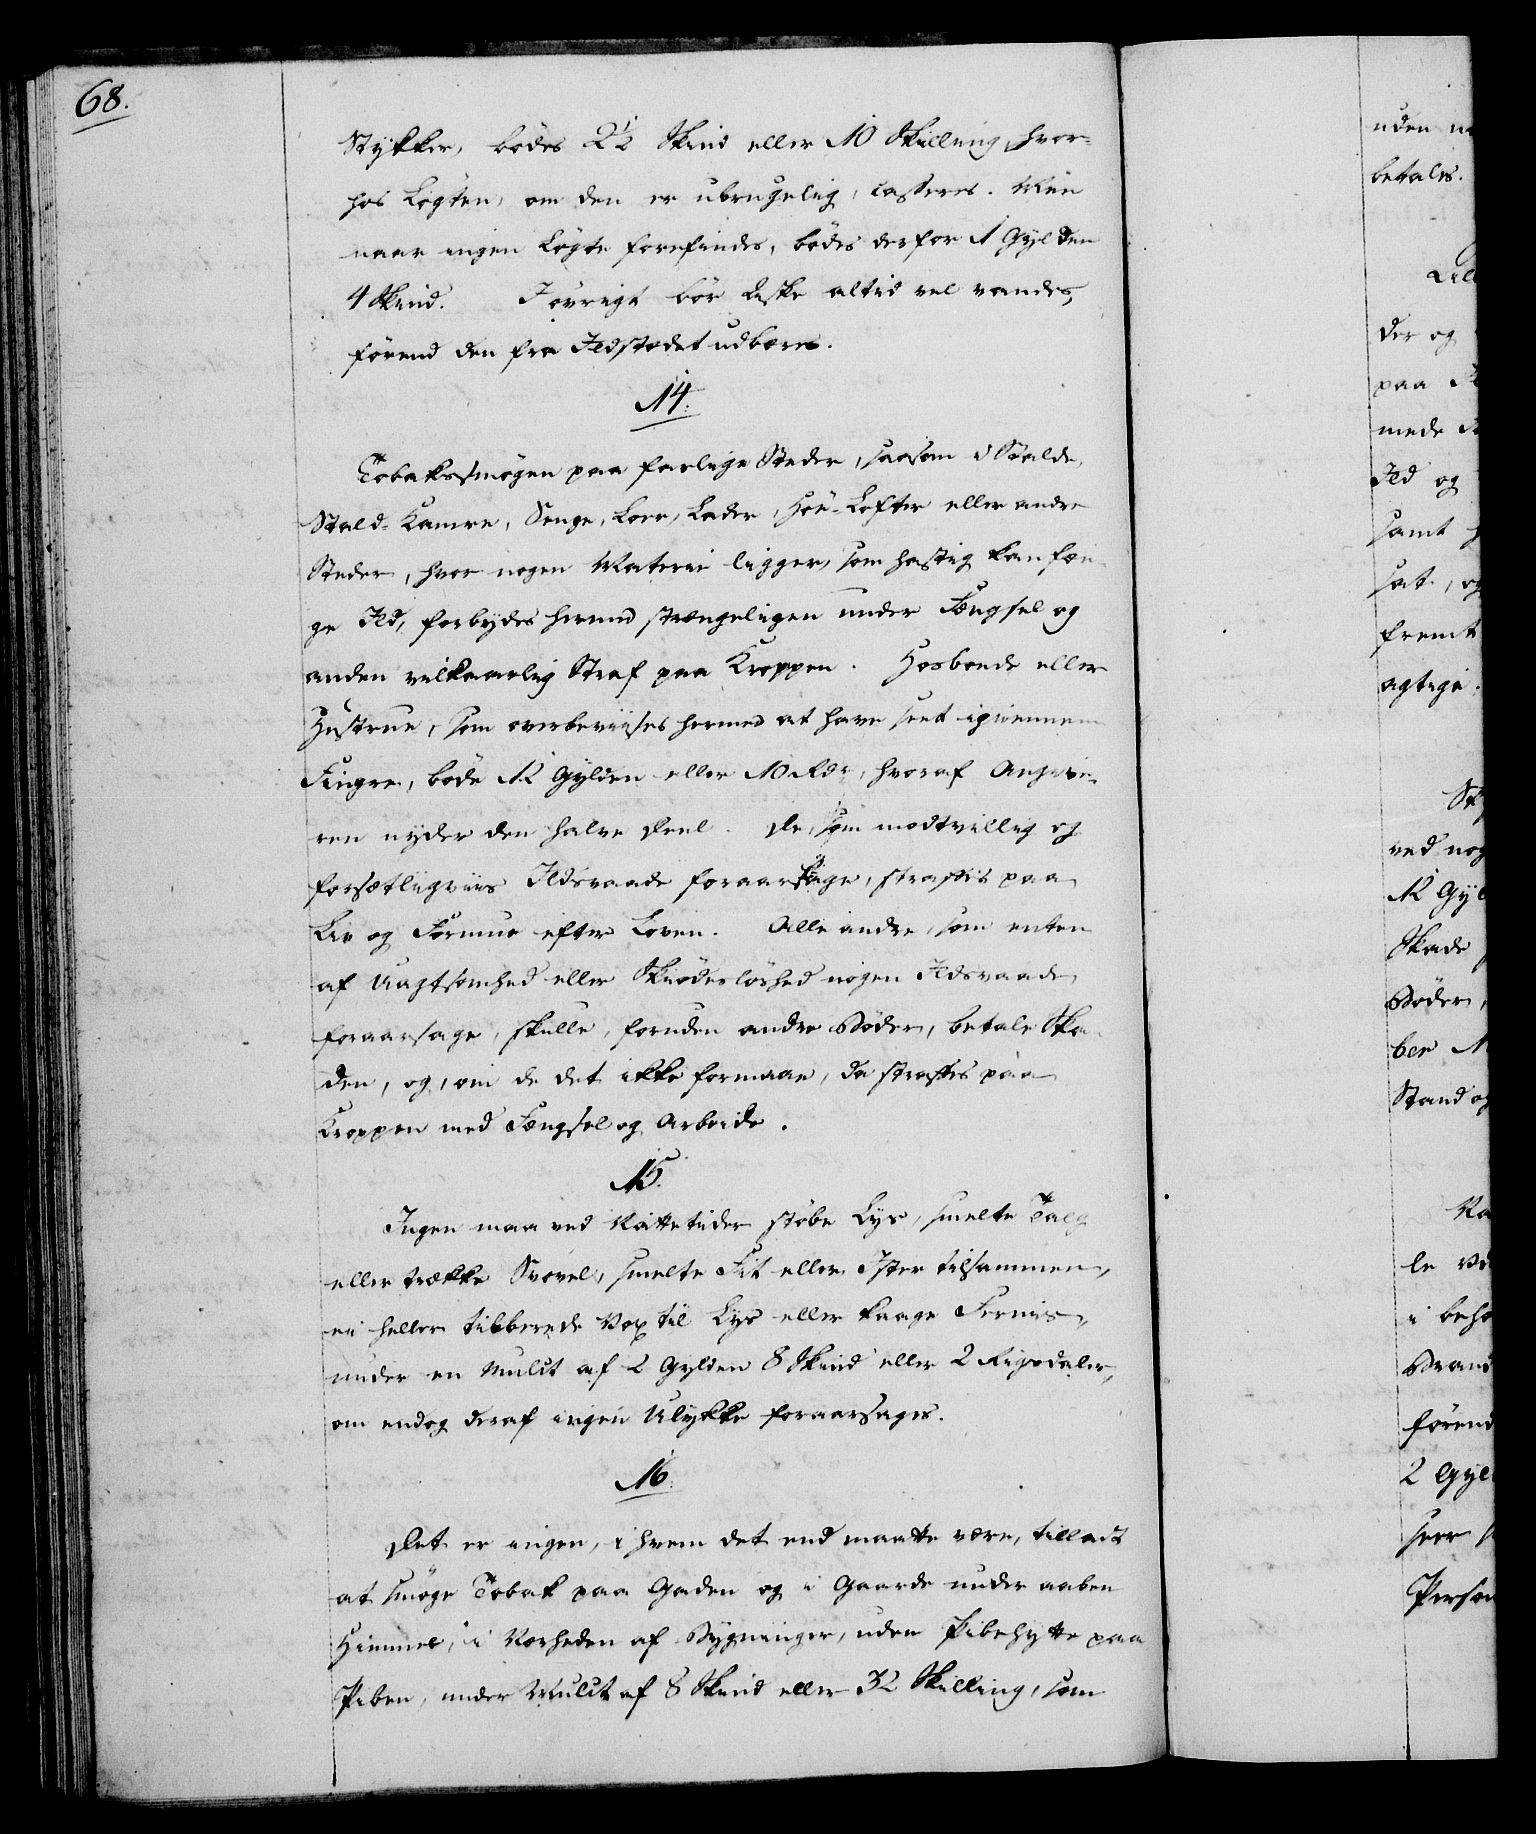 68.
Stykker, bødes 2½ Skind eller 10 Skilling, hvor-
hos Løgten, om den er ubrugelig, casseres. Men
naar ingen Løgte forefindes, bødes derfor 1 Gylden
4 Skind. Jøvrigt bør Aske altid vel vandes,
førend den fra Jldstædet udbæres.
14.
Tobakssmøgen paa farlige Steder, saasom i Stalde,
Stald-Kamre, Senge, Loer, Lader, Høe-Lofter eller andre
Steder, hvor nogen Materie ligger, som hastig kan fæn-
ge Jld, forbydes hermed strængeligen under Fængsel og
anden vilkaarlig Straf paa Kroppen. Hosbonde eller
Hustrue, som overbeviises hermed at have seet igiennem
Fingre, bøde 12 Gylden eller 10 Rdr, hvoraf Angive-
ren nyder den halve Deel. De, som modtvillig og
forsætligviis Jldsvaade foraarsage, straffes paa
Liv og Formue efter Loven. Alle andre, som enten
af Uagtsomhed eller Skiødesløshed nogen Jldsvaade
foraarsage, skulle, foruden andre Bøder, betale Ska-
den, og, om de det ikke formaae, da straffes paa
Kroppen med Fængsel og Arbeide.
15.
Jngen maa ved Nattetider støbe Lys, smelte Talg
eller trække Svovel, smelte Fit eller Jster tilsammen,
ei heller tilberede Vox til Lys eller kaage Fernis,
under en Mulct af 2 Gylden 8 Skind eller 2 Rigsdaler,
om endog deraf ingen Ulykke foraarsages.
16.
Det er ingen, i hvem det end maatte være, tilladt
at smøge Tobak paa Gaden og i Gaarde under aaben
Himmel, i Nærheden af Bygninger, uden Pibehytte paa
Piben, under Mulct af 8 Skind eller 32 Skilling, som
uden
betales.
der og
paa
mede
Jld og
samt
sat, og
fremt
agtige
ved nog
12 Gyl
Skade
Bøder,
ber
Stand og
le
i beho
Brand
førend
2 Gyl
seer
Person